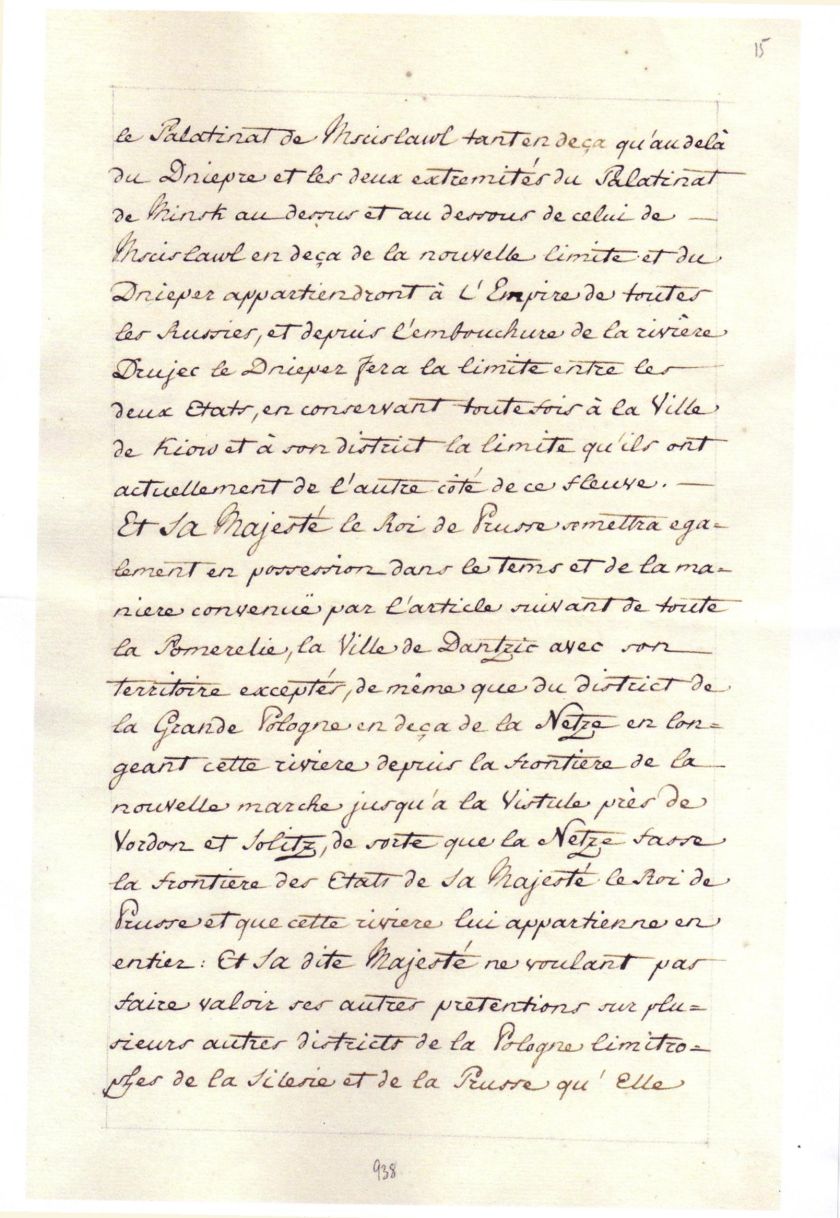 15
le Palatinat de Mscislawl tant en deça qu'au delà
du Dniepre et les deux extremités du Palatinat
de Minsk au dessus et au dessous de celui de —
Mscislawl en deça de la nouvelle limite et du
Dnieper appartiendront à L'Empire de toutes
les Russies, et depuis l'embouchure de la rivière
Drujec le Dnieper fera la limite entre les —
deux Etats, en conservant toutefois à la Ville
de Kiow et à son district la limite qu'ils ont
actuellement de l'autre côté de ce fleuve. —
Et Sa Majesté le Roi de Prusse se mettra ega=
lement en possession dans le tems et de la ma=
niere convenuë par l'article suivant de toute
la Pomerelie, la Ville de Dantzic avec son
territoire exceptés, de même que du district de
la Grande Pologne en deça de la Netze en lon=
geant cette riviere depuis la frontiere de la
nouvelle marche jusqu'à la Vistule près de
Vordon et Solitz, de sorte que la Netze fasse
la frontiere des Etats de Sa Majesté le Roi de
Prusse et que cette riviere lui appartienne en
entier: Et Sa dite Majesté ne voulant pas
faire valoir ses autres pretentions sur plu=
sieurs autres districts de la Pologne limitro=
phes de la Silesie et de la Prusse qu'Elle
938